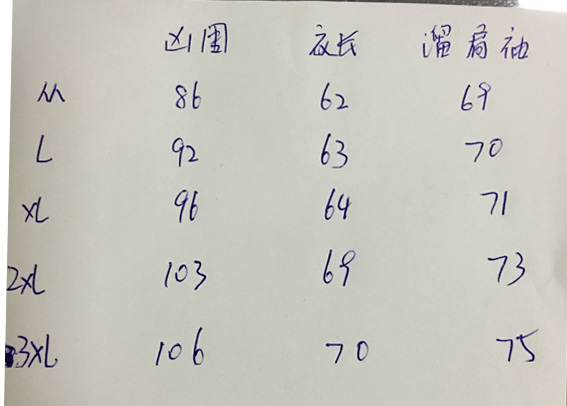 凶围 衣长 溜肩袖
M 86 62 69
L 92 63 70
XL 96 64 71
2XL 103 69 73
3XL 106 70 75